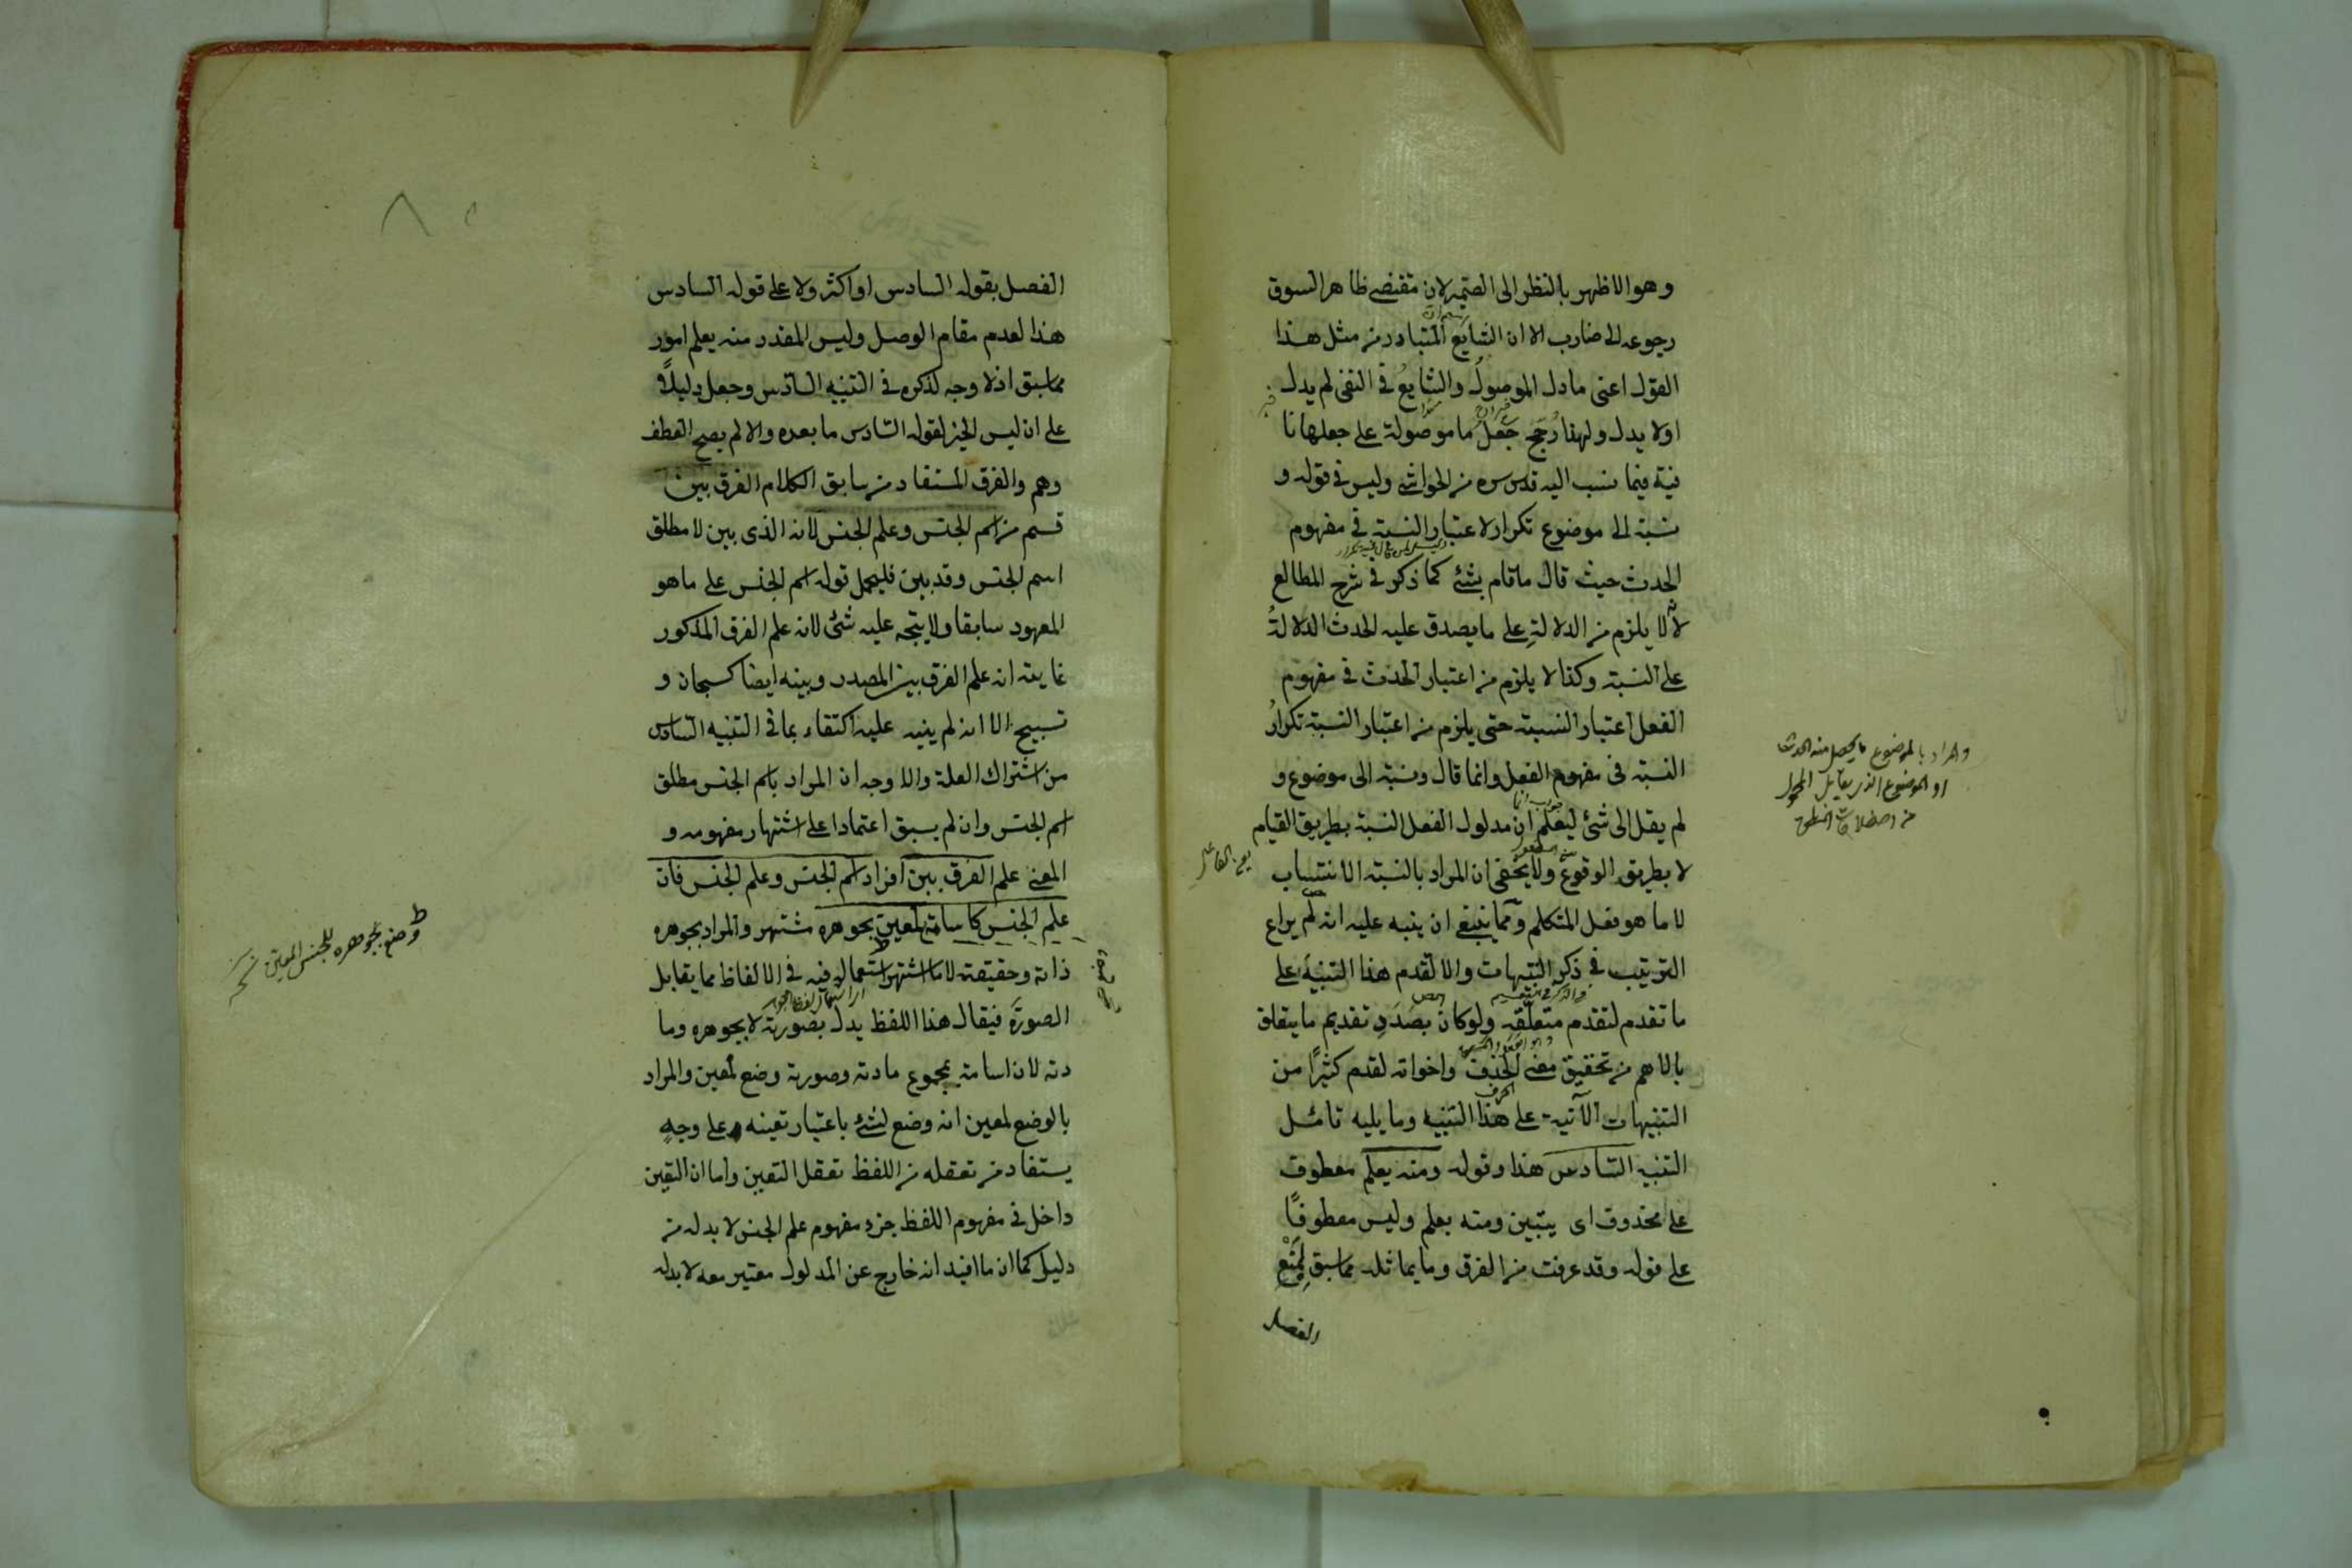 وهو الاظهر بالنظر الى الضمير لان مقتضى ظاهر السوق
رجوعه الى ضارب الا ان الشايع المتبادر من مثل هذا
القول اعنى ما دل الموصول والشايع فى النفى لم يدل
اولا يدل ولهذا رجح جعل ما موصولة على جعلها نا
فية فيما نسب اليه قدس سره من الحواشى وليس فى قوله و
نسبة الى موضوع تكرار لاعتبار النسبة فى مفهوم
الحدث حيث قال ما قام بشئ كما ذكر فى شرح المطالع
لانه لا يلزم من الدلالة على ما يصدق عليه الحدث الدلالة
على النسبة وكذا لا يلزم من اعتبار الحدث فى مفهوم
الفعل اعتبار النسبة حتى يلزم من اعتبار النسبة تكرار
النسبة فى مفهوم الفعل وانما قال ونسبة الى موضوع و
لم يقل الى شئ ليعلم ان مدلول الفعل النسبة بطريق القيام
لا بطريق الوقوع ولا يخفى ان المراد بالنسبة الانتساب
لا ما هو فعل المتكلم ومما ينبغى ان ينبه عليه انه لم يراع
الترتيب فى ذكر التنبيهات والا لقدم هذا التنبيه على
ما تقدم لتقدم متعلقه ولو كان بصدد تقديم ما يتعلق
بالاهم من تحقيق معنى الحرف واخواته لقدم كثيرا من
التنبيهات الآتية على هذا التنبيه وما يليه تأمل
التنبيه السادس هذا وقوله ومنه يعلم معطوف
على محذوف اى يتبين ومنه يعلم وليس معطوفا
على قوله وقد عرفت من الفرق وما يماثله مما سبق لمنع
الفصل
والمراد بالموضوع ما يحصل منه الحدث
او الموضوع الذى يقابل المحمول
الفصل بقوله السادس او اكثر ولا على قوله السادس
هذا لعدم مقام الوصل وليس المقدر منه يعلم امور
مما سبق اذ لا وجه لذكره فى التنبيه السادس وجعل دليلا
على ان ليس الخبر لقوله السادس ما بعده والا لم يصح العطف
وهم والفرق المستفاد من سابق الكلام الفرق بين
قسم من اسم الجنس وعلم الجنس لانه الذى بين لا مطلق
اسم الجنس وقد بين فليحمل قوله اسم الجنس على ما هو
المعهود سابقا ولا يتجه عليه شئ لانه علم الفرق المذكور
غايته انه علم الفرق بين المصدر وبينه ايضا كسبحان و
تسبيح الا انه لم ينبه عليه اكتفاء بما فى التنبيه السادس
من اشتراك العلة والاوجه ان المراد باسم الجنس مطلق
اسم الجنس وان لم يسبق اعتمادا على اشتهار مفهومه و
المعنى علم الفرق بين افراد اسم الجنس وعلم الجنس فان
علم الجنس كاسامة لمعين بجوهره مشتهر والمراد بجوهره
ذاته وحقيقته لا ما اشتهر استعماله فيه فى الالفاظ مما يقابل
الصورة فيقال هذا اللفظ يدل بصورته لا بجوهره وما
دته لان اسامة بمجموع مادته وصورته وضع لمعين والمراد
بالوضع لمعين انه وضع لشئ باعتبار تعينه على وجه
يستفاد من تعقله من اللفظ تعقل التعين واما ان التعين
داخل فى مفهوم اللفظ جزء مفهوم علم الجنس لا بد له من
دليل كما ان ما افيد انه خارج عن المدلول معتبر معه لا بد له
وضع بجوهره للجنس المعين